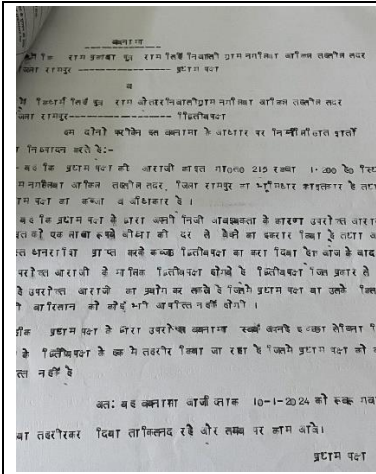 बयनामा
राम प्रकाश पुत्र राम सिंह निवासी ग्राम नगलिया आकिल तहसील सदर
जिला रामपुर --------------- प्रथम पक्ष
व
सिंह पुत्र राम औतार निवासी ग्राम नगलिया आकिल तहसील सदर
रामपुर --------------- द्वितीय पक्ष
हम दोनों फरीकेन इस बयनामा के आधार पर निम्नलिखित शर्तों
निष्पादन करते है:-
यह कि प्रथम पक्ष की आराजी गाटा सं0 215 रकबा 1-200 हे0
नगलिया आकिल तहसील सदर, जिला रामपुर का भूमिधर काश्तकार है तथा
पक्ष का कब्जा व अधिकार है ।
यह कि प्रथम पक्ष के द्वारा अपनी निजी आवश्यकता के कारण उपरोक्त
को एक लाख रूपये बीघा की दर से बेचने का इकरार किया है तथा
धनराशि प्राप्त करके कब्जा द्वितीय पक्ष का करा दिया है आज के बाद
उपरोक्त आराजी के मालिक द्वितीय पक्ष होंगे द्वितीय पक्ष जिस प्रकार से
उपरोक्त आराजी का प्रयोग कर सकते है जिसमे प्रथम पक्ष या उसके
वारिसान को कोई भी आपत्ति नहीं होगी ।
प्रथम पक्ष के द्वारा उपरोक्त बयनामा
के द्वितीय पक्ष के हक मे तहरीर किया जा रहा है जिसमे प्रथम पक्ष को
नहीं है
अत: यह बयनामा आज दिनांक 10-1-2024 को रूबरू
तहरीर कर दिया ताकि सनद रहे और समय पर काम आवे।
प्रथम पक्ष